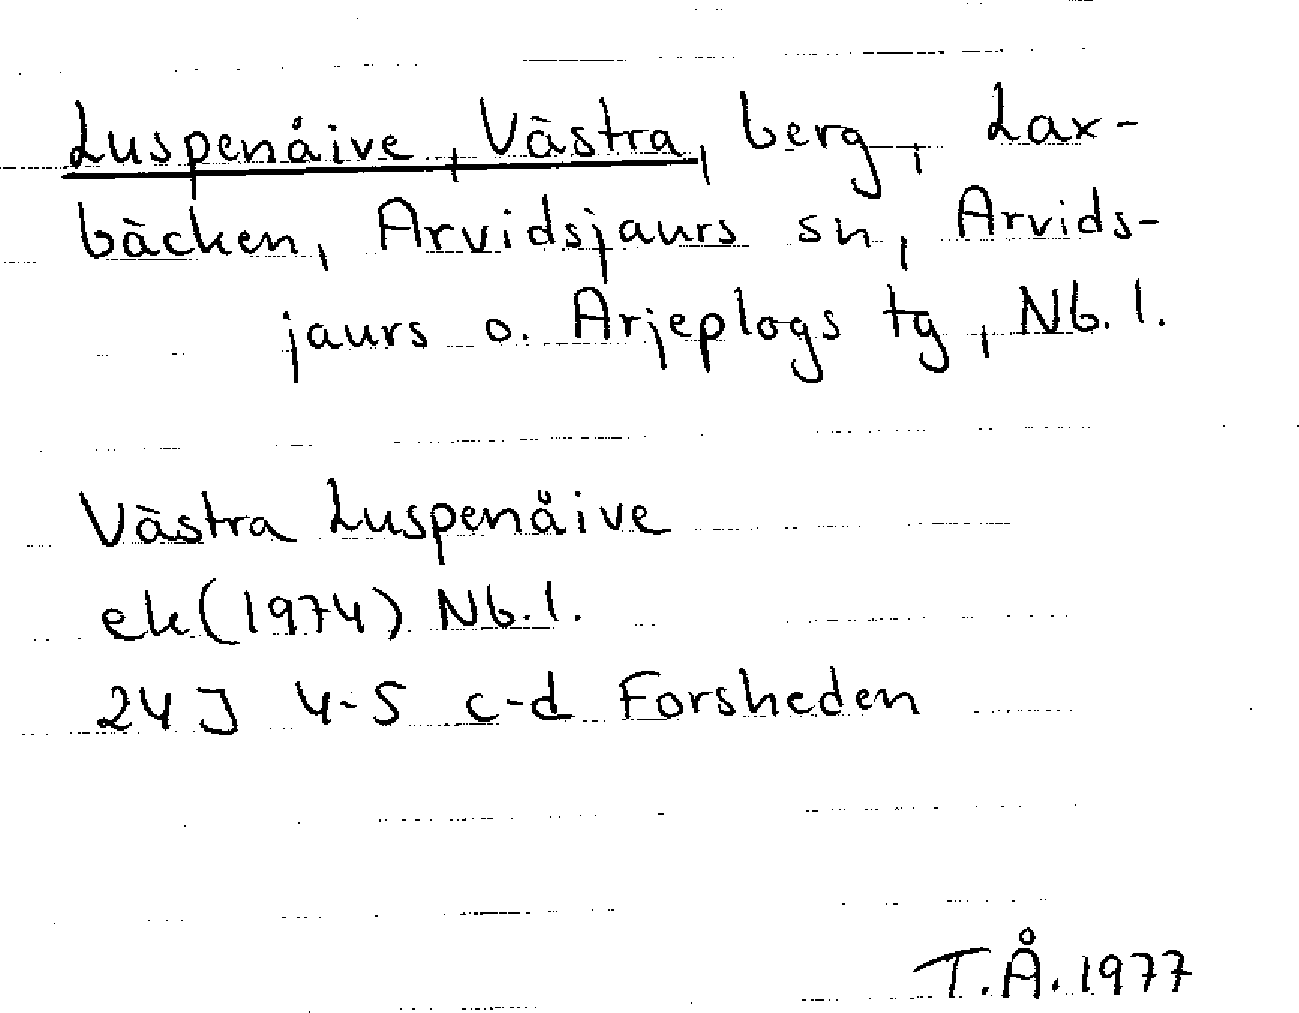 Luspenåive, Västra, berg, Lax-
bäcken, Arvidsjaurs sn, Arvids-
jaurs o. Arjeplogs tg, Nb. l.
Västra Luspenåive
ek (1974) Nb. l.
24J 4-5 c-d Forsheden
T.Å. 1977